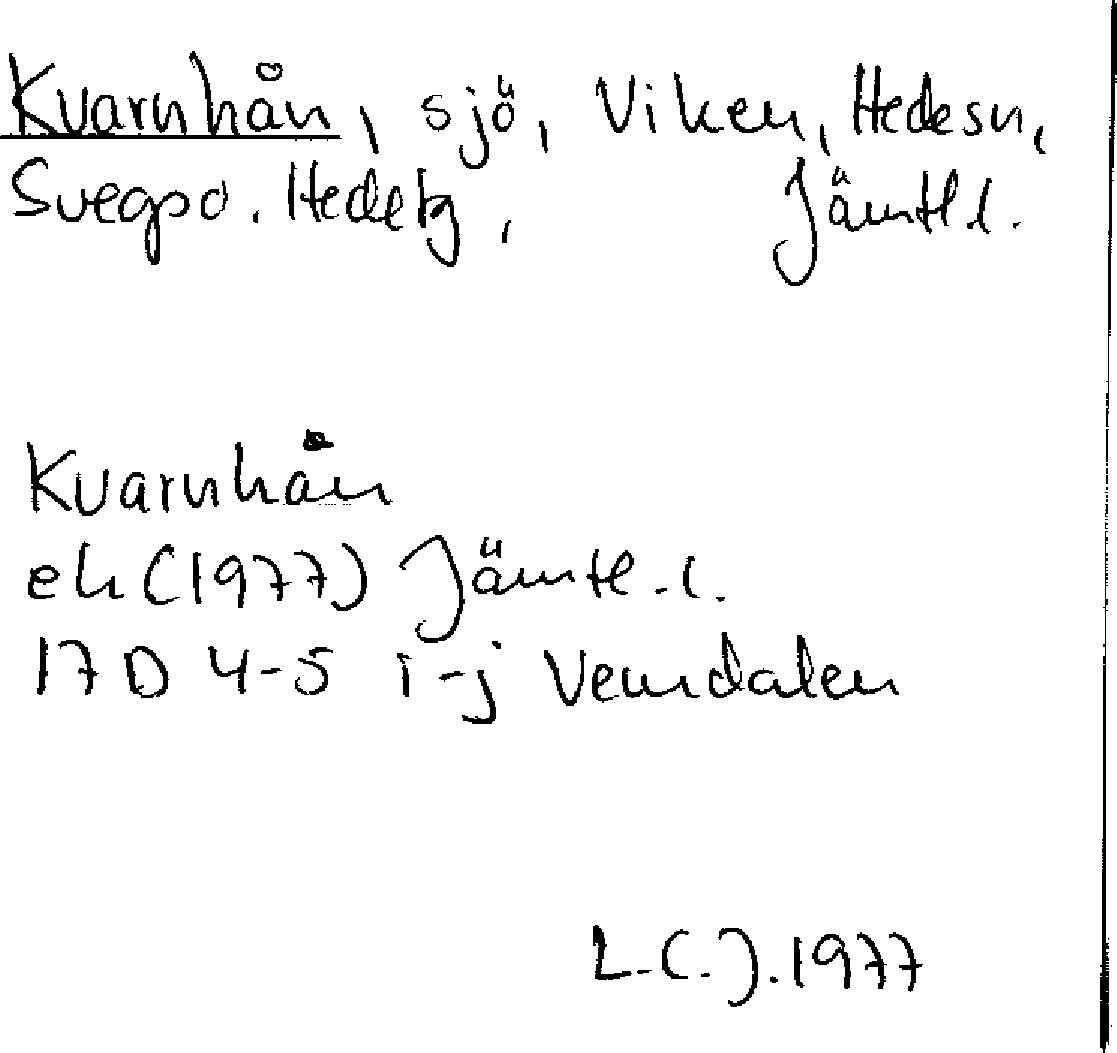 Kvarnhån, sjö, Viken, Hedesn,
Svegpo. Hedetg, Jämtl.l.
Kvarnhån
ek (1977) Jämtl.l.
17D 4-5 i-j Vemdalen
L.C.J. 1977